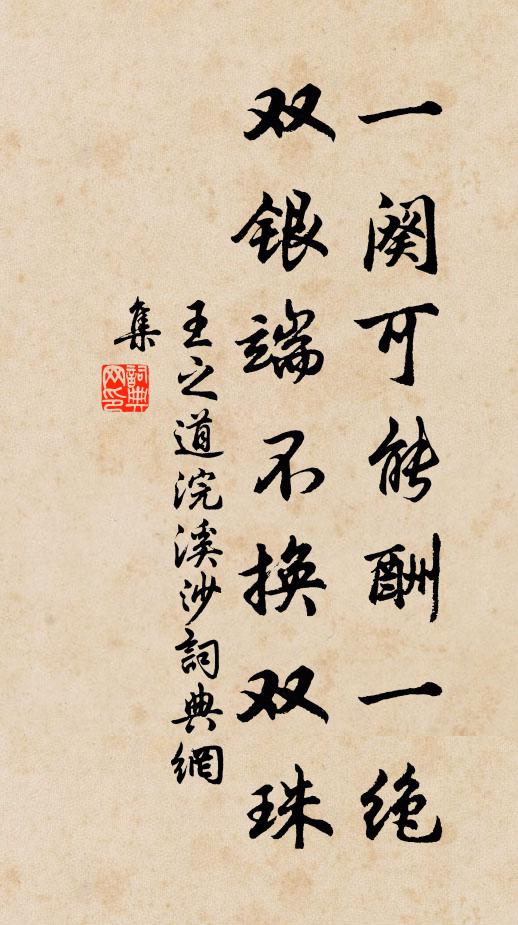 一阕可能酬一绝
双银端不换双珠
王之道浣溪沙詞典網
集
詞典网印